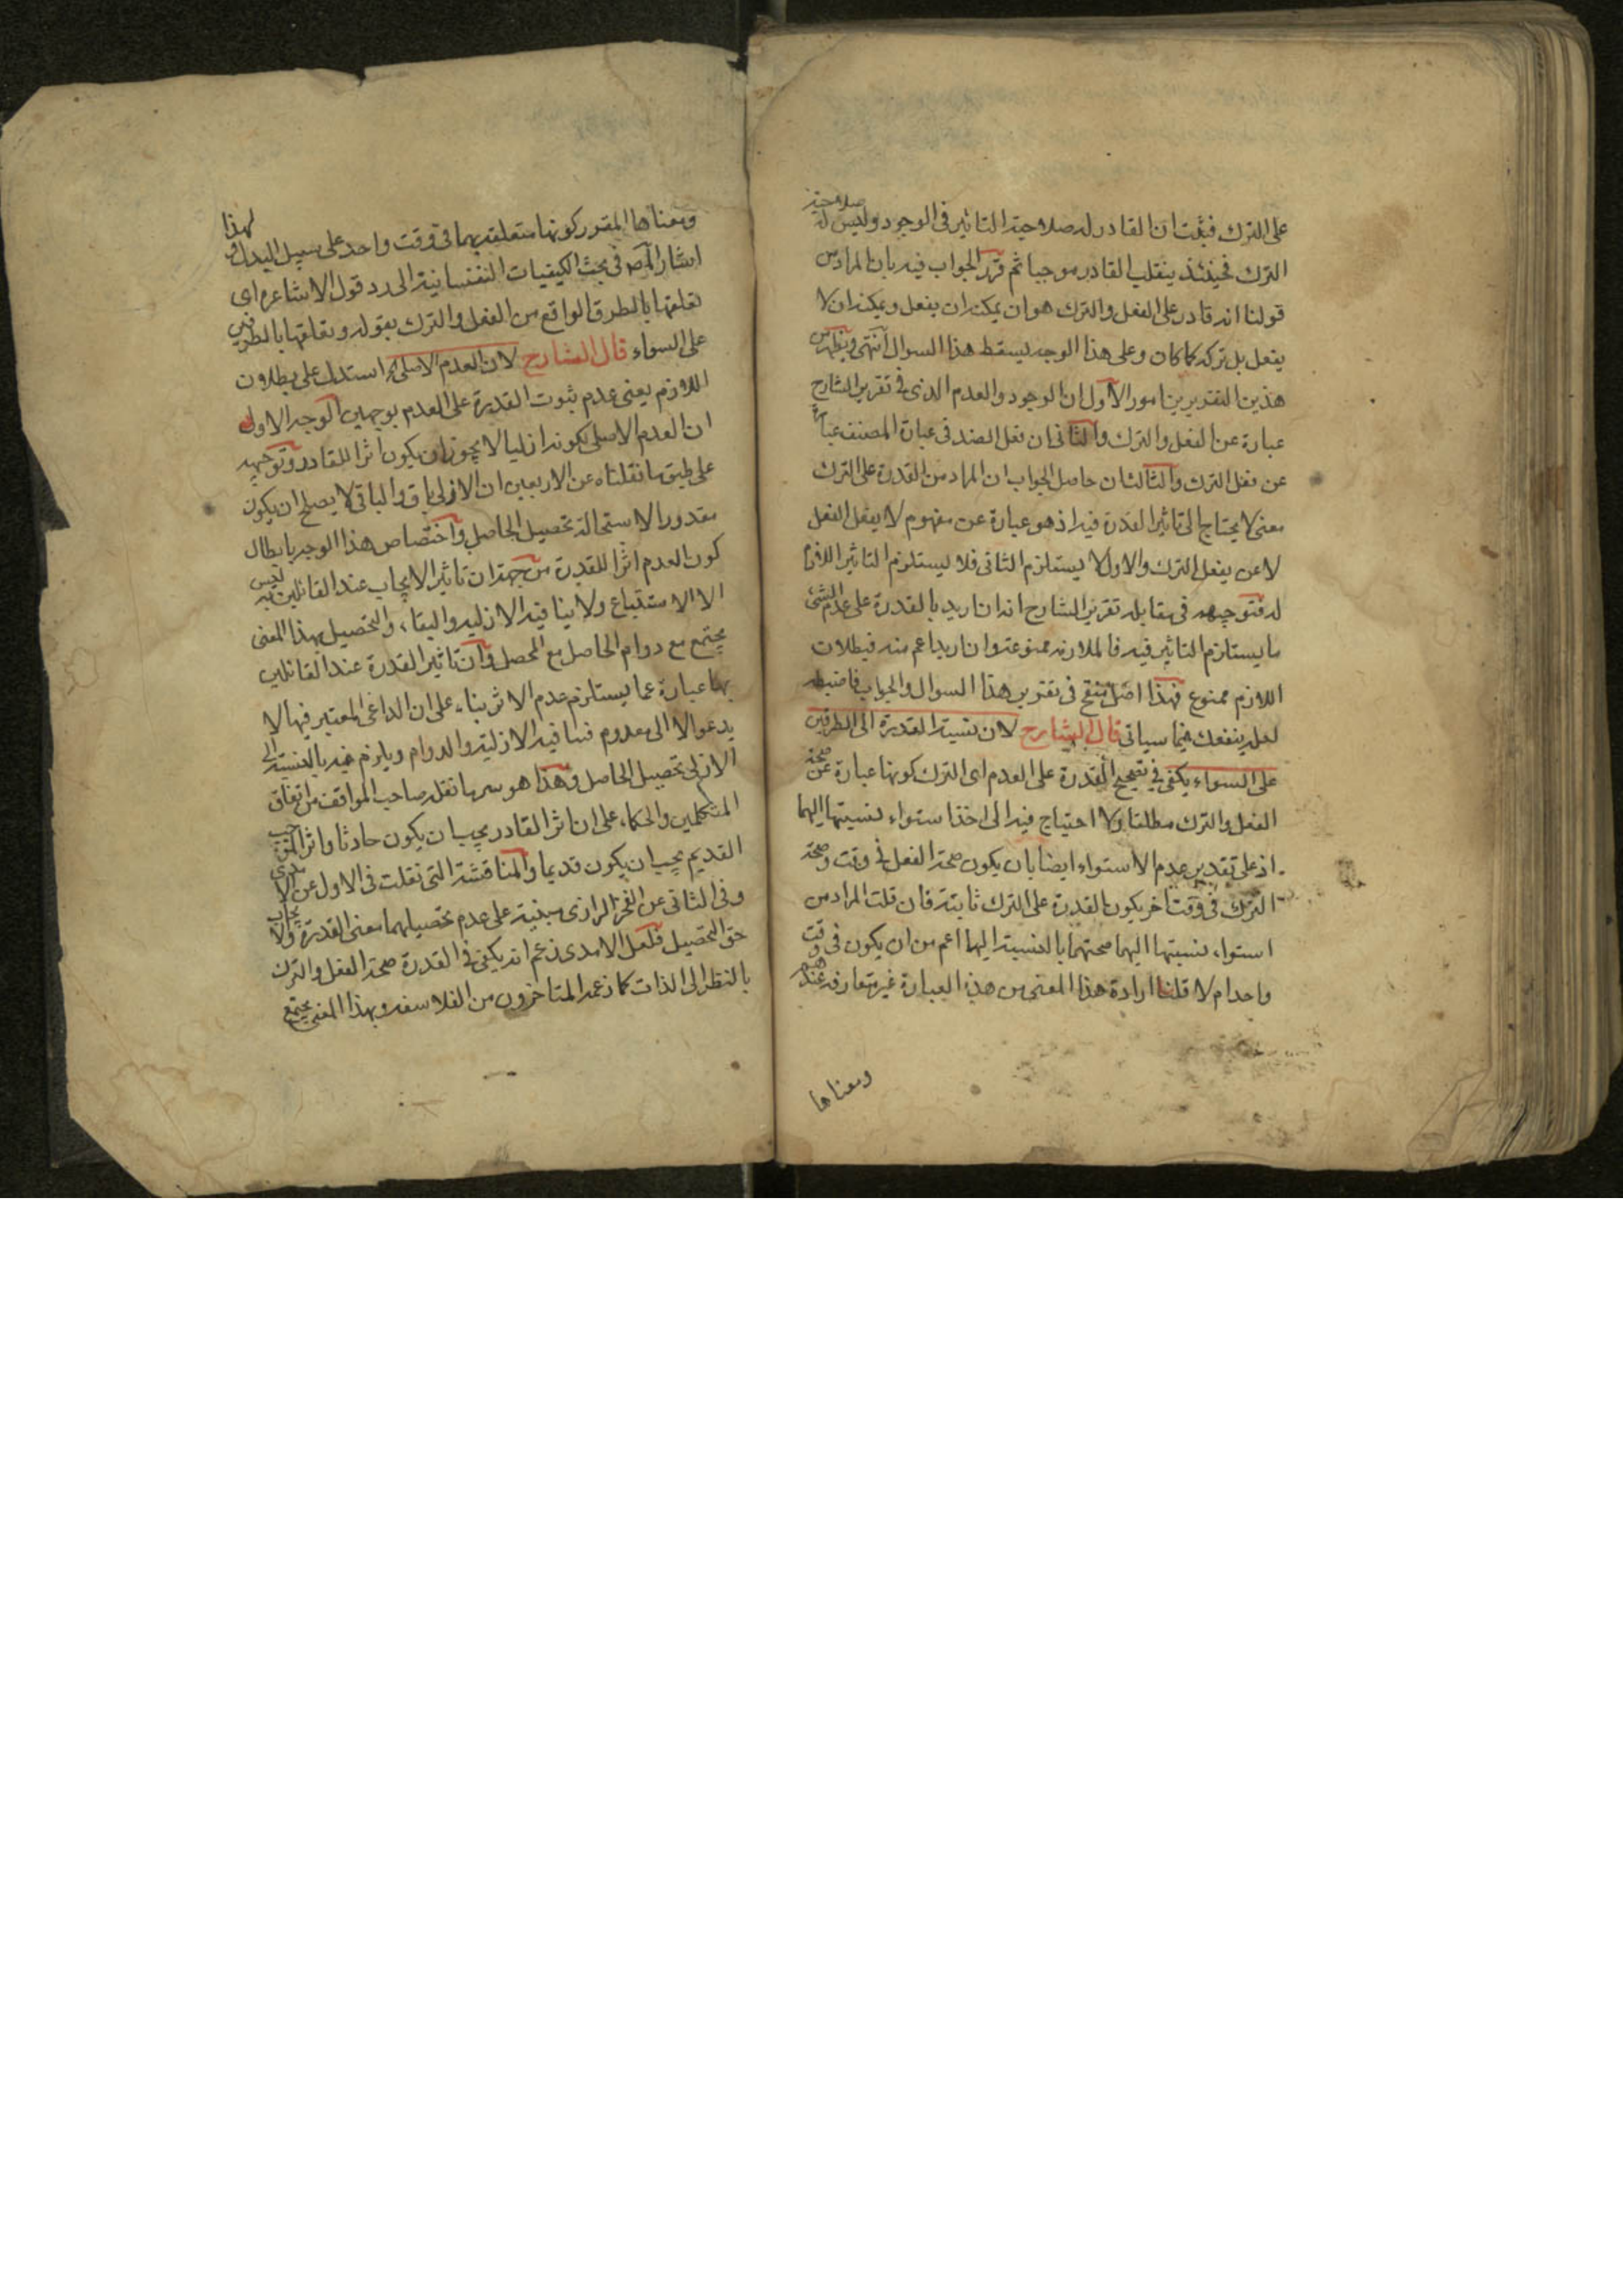 على الترك فثبت ان القادر له صلاحية التاثير في الوجود وليس له صلاحية
الترك فحينئذ ينقلب القادر موجبا ثم قرر الجواب فيه بان المراد من
قولنا انه قادر على الفعل والترك هو ان يمكنه ان يفعل ويمكنه ان لا
يفعل بل تركه كما كان وعلى هذا الوجه يسقط هذا السوال انتهى ويظهر من
هذين التقريرين امور الاول ان الوجود والعدم الذى فى تقرير الشارح
عبارة عن الفعل والترك والثانى ان فعل الضد فى عبارة المصنف عبارة
عن فعل الترك والثالث ان حاصل الجواب ان المراد من القدرة على الترك
معنى لا يحتاج الى تاثير القدرة فيه اذ هو عبارة عن مفهوم لا يفعل الفعل
لا عن يفعل الترك والاول لا يستلزم الثانى فلا يستلزم التاثير اللازم
له فتوجيهه فى مقابله تقرير الشارح انه ان اريد بالقدرة على عدم الشئ
ما يستلزم التاثير فيه فالملازمه ممنوعة وان اريد اعم منه فبطلان
اللازم ممنوع فهذا اصل منقح فى تقرير هذا السوال والجواب فاضبطه
لعله ينفعك فيما سياتى قال الشارح لان نسبة القدرة الى الطرفين
على السواء يكفى فى تصحيح القدرة على العدم اى الترك كونها عبارة عن صحة
الفعل والترك مطلقا ولا احتياج فيه الى اخذ استواء نسبتها اليهما
اذ على تقدير عدم الاستواء ايضا بان يكون صحة الفعل فى وقت وصحة
الترك فى وقت اخر يكون القدرة على الترك ثابتة فان قلت المراد من
استواء نسبتها اليهما صحتهما بالنسبة اليها اعم من ان يكون فى وقت
واحد ام لا قلنا ارادة هذا المعنى من هذه العبارة غير متعارفه عندهم
ومعناها
ومعناها المقرر كونها متعلقة بهما فى وقت واحد على سبيل البدل ولهذا
اشار المص فى بحث الكيفيات النفسانية الى رد قول الاشاعره اى
تعلقها بالطرف الواقع من الفعل والترك بقوله وتعلقها بالطرفين
على السواء قال الشارح لان العدم الاصلى استدل على بطلان
اللازم يعنى عدم ثبوت القدرة على العدم بوجهين الوجه الاول
ان العدم الاصلى لكونه ازليا لا يجوز ان يكون اثرا للقادر وتوجيهه
على طبق ما نقلناه عن الاربعين ان الازلى باق والباقى لا يصلح ان يكون
مقدورا لاستحالة تحصيل الحاصل واختصاص هذا الوجه بابطال
كون العدم اثرا للقدرة من جهة ان تاثير الايجاب عند القائلين به ليس
الا الاستتباع ولا ينافيه الازليه والبقاء، والتحصيل بهذا المعنى
يجتمع مع دوام الحاصل مع المحصل وان تاثير القدرة عند القائلين
بها عبارة عما يستلزم عدم الاثر بناء على ان الداعى المعتبر فيها لا
يدعو الا الى معدوم فينافيه الازلية والدوام ويلزم فيه بالنسبة الى
الازلى تحصيل الحاصل وهذا هو سر ما نقله صاحب المواقف من اتفاق
المتكلمين والحكماء على ان اثر القادر يجب ان يكون حادثا واثر الموجب
القديم يجب ان يكون قديما والمناقشة التى نقلت فى الاول عن الامدى
وفى الثانى عن الفخر الرازى مبنية على عدم تحصيلهما معنى القدرة والايجاب
حق التحصيل فلعل الامدى زعم انه يكفى فى القدرة صحة الفعل والترك
بالنظر الى الذات كما زعمه المتاخرون من الفلاسفه وبهذا المعنى يجتمع